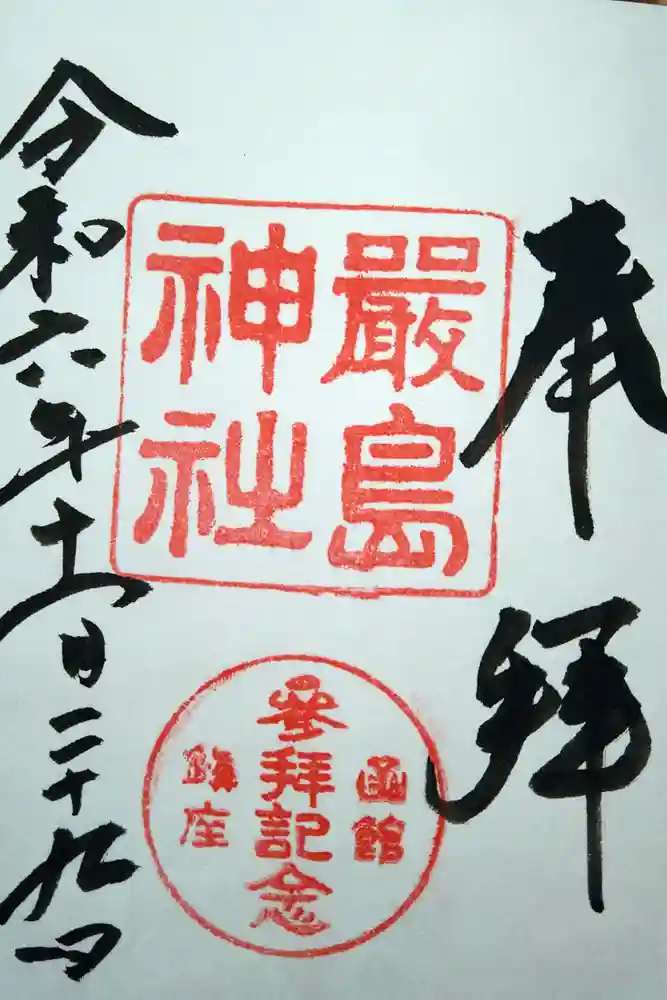 奉拝
嚴島
神社
函館
參拜記念
鎮座
令和六年十一月二十九日